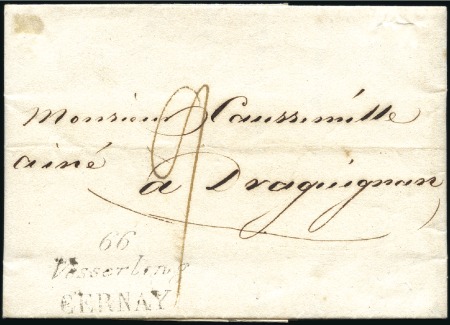 Monsieur Caussemille
ainé
à Draguignan
9
66
Wesserling
CERNAY